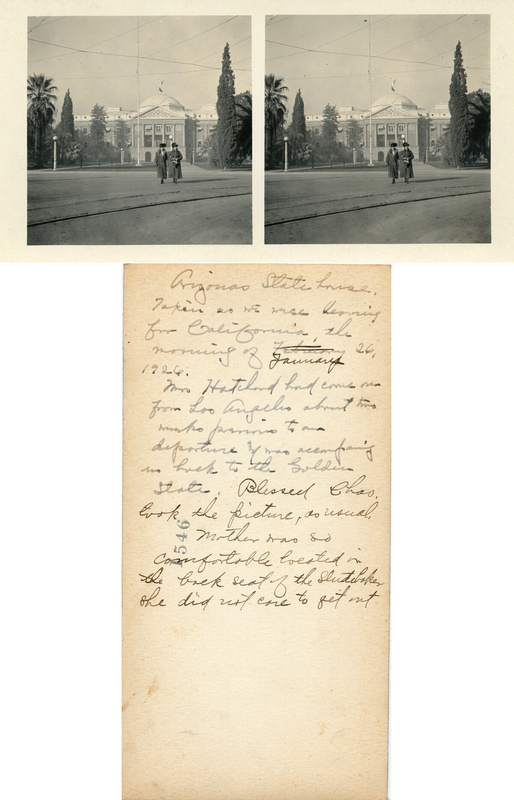 Arizonas State house.
Taken as we were leaving
for California, the
morning of February 26,
January
1926.
Mrs Hatland had come on
from Los Angeles about two
weeks previous to our
departure & was accompaning
us back to the Golden
State. Blessed Chas.
took the picture, as usual.
Mother was so
comfortable located in
the back seat of the Studebaker
she did not care to get out
546